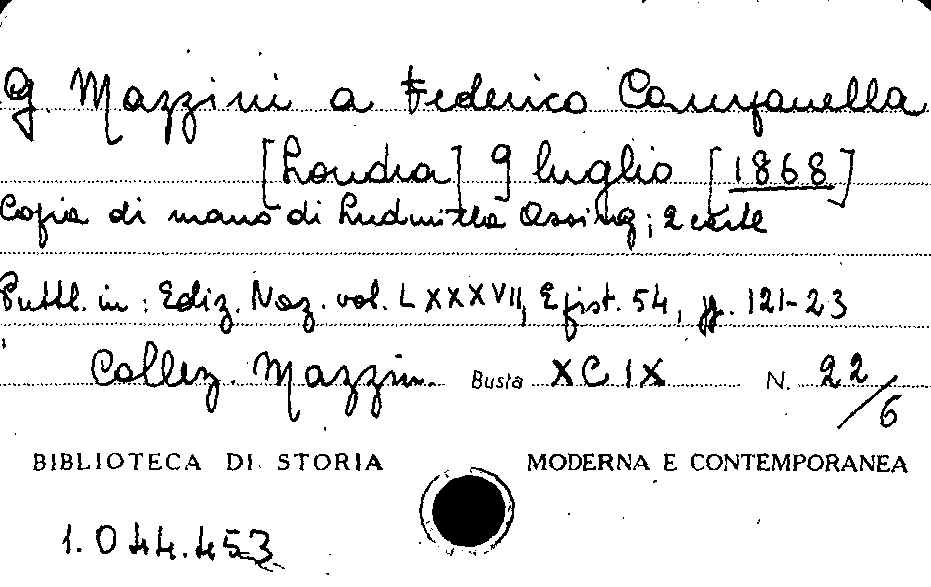 G. Mazzini a Federico Campanella
[Londra] 9 luglio [1868]
Copia di mano di Ludmilla Assing; 2 carte
Pubbl. in: Ediz. Naz. vol. LXXXVII, Epist. 54, pp. 121-23
Collez. Mazzin. Busta XCIX N. 22/6
BIBLIOTECA DI STORIA MODERNA E CONTEMPORANEA
1.044.453